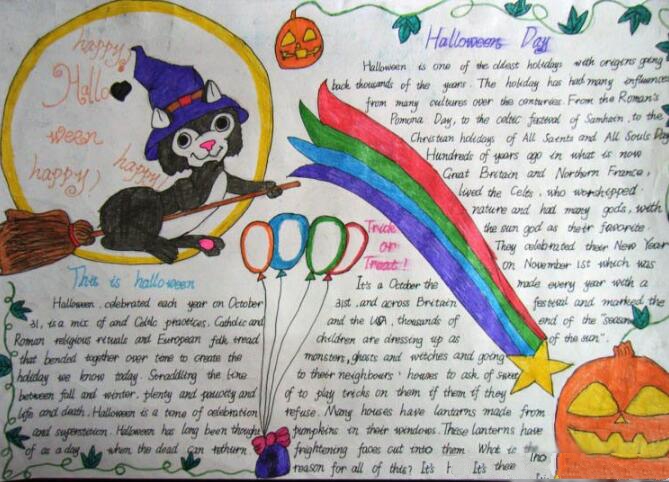 happy!
Hallo
ween
happy!
happy!
Halloween Day
Halloween is one of the oldest holidays with origins going
back thousands of the years. The holiday has had many influences
from many cultures over the centuries. From the Roman's
Pomona Day, to the celtic festival of Samhain, to the
Christian holidays of All Saints and All Souls Day
Hundreds of years ago in what is now
Great Britain and Northern France,
lived the Celts, who worshipped
nature and had many gods, with
the sun god as their favorite
They celebrated their New Year
on November 1st which was
made every year with a
festival and marked the
end of the "season
of the sun".
This is halloween
Halloween, celebrated each year on October
31, is a mix of and Celtic practices. Catholic and
Roman religious rituals and European folk tread
that bended together over tene to create the
holiday we know today. Straddling the line
between fall and winter, plenty and paucity and
life and death. Halloween is a teme of celebration
and superstation. Halloween has long been thought
of as a day when the dead can rethurn.
Trick
or
Treat!
It's a October the
31st, and across Britain
and the USA, thousands of
children are dressing up as
monsters, ghosts and witches and going
to their neighbours' houses to ask of sweet
of to play tricks on them if them if they
refuse. Many houses have lantarns made from
pumpkins in their windows. These lanterns have
frightening faces cut into them. What is the
reason for all of this? It's It's there